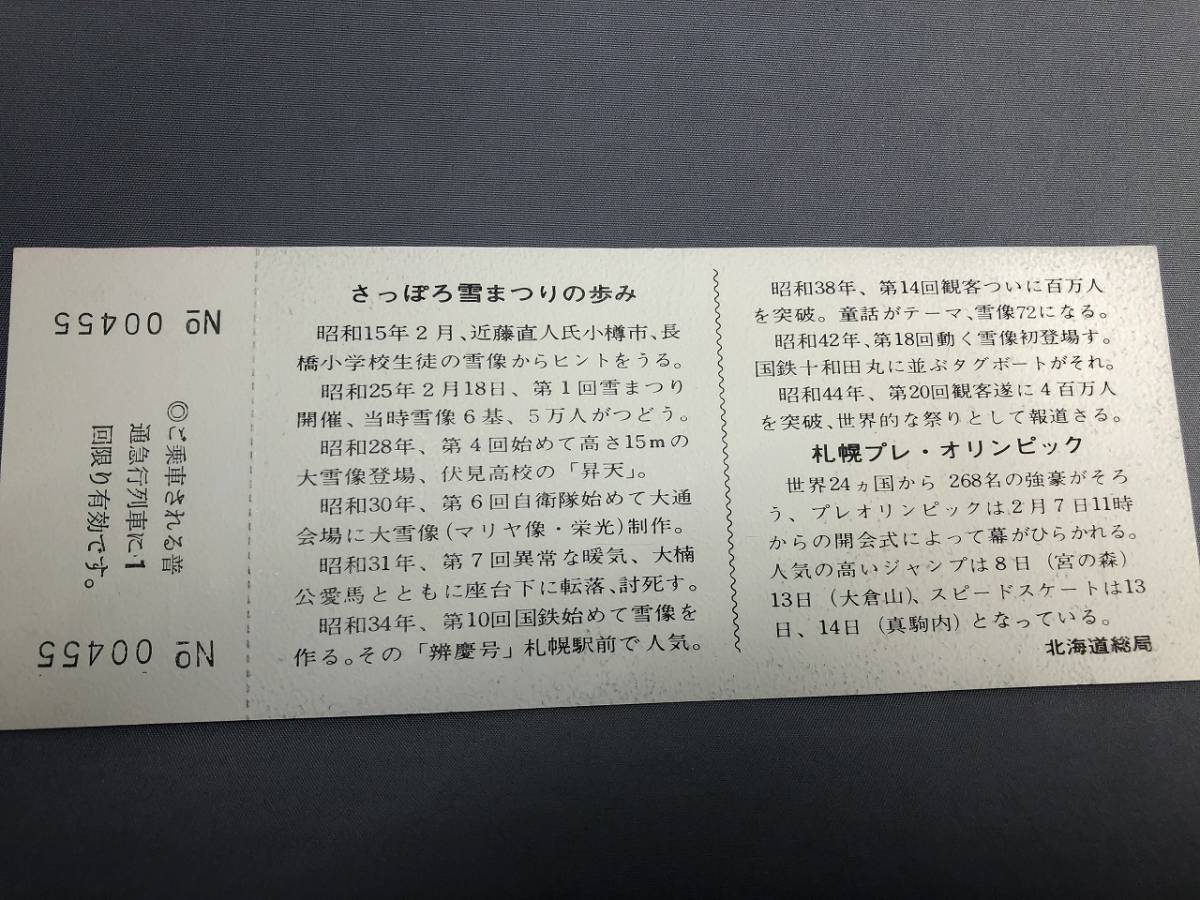 さっぽろ雪まつりの歩み
昭和15年2月、近藤直人氏小樽市、長
橋小学校生徒の雪像からヒントをうる。
昭和25年2月18日、第1回雪まつり
開催、当時雪像6基、5万人がつどう。
昭和28年、第4回始めて高さ15mの
大雪像登場、伏見高校の「昇天」。
昭和30年、第6回自衛隊始めて大通
会場に大雪像(マリヤ像・栄光)制作。
昭和31年、第7回異常な暖気、大楠
公愛馬とともに座台下に転落、討死す。
昭和34年、第10回国鉄始めて雪像を
作る。その「辨慶号」札幌駅前で人気。
昭和38年、第14回観客ついに百万人
を突破。童話がテーマ、雪像72になる。
昭和42年、第18回動く雪像初登場す。
国鉄十和田丸に並ぶタグボートがそれ。
昭和44年、第20回観客遂に4百万人
を突破、世界的な祭りとして報道さる。
札幌プレ・オリンピック
世界24ヵ国から268名の強豪がそろ
う、プレオリンピックは2月7日11時
からの開会式によって幕がひらかれる。
人気の高いジャンプは8日(宮の森)
13日(大倉山)、スピードスケートは13
日、14日(真駒内)となっている。
北海道総局
№ 00455
◎ご乗車される普
通急行列車に1
回限り有効です。
№ 00455